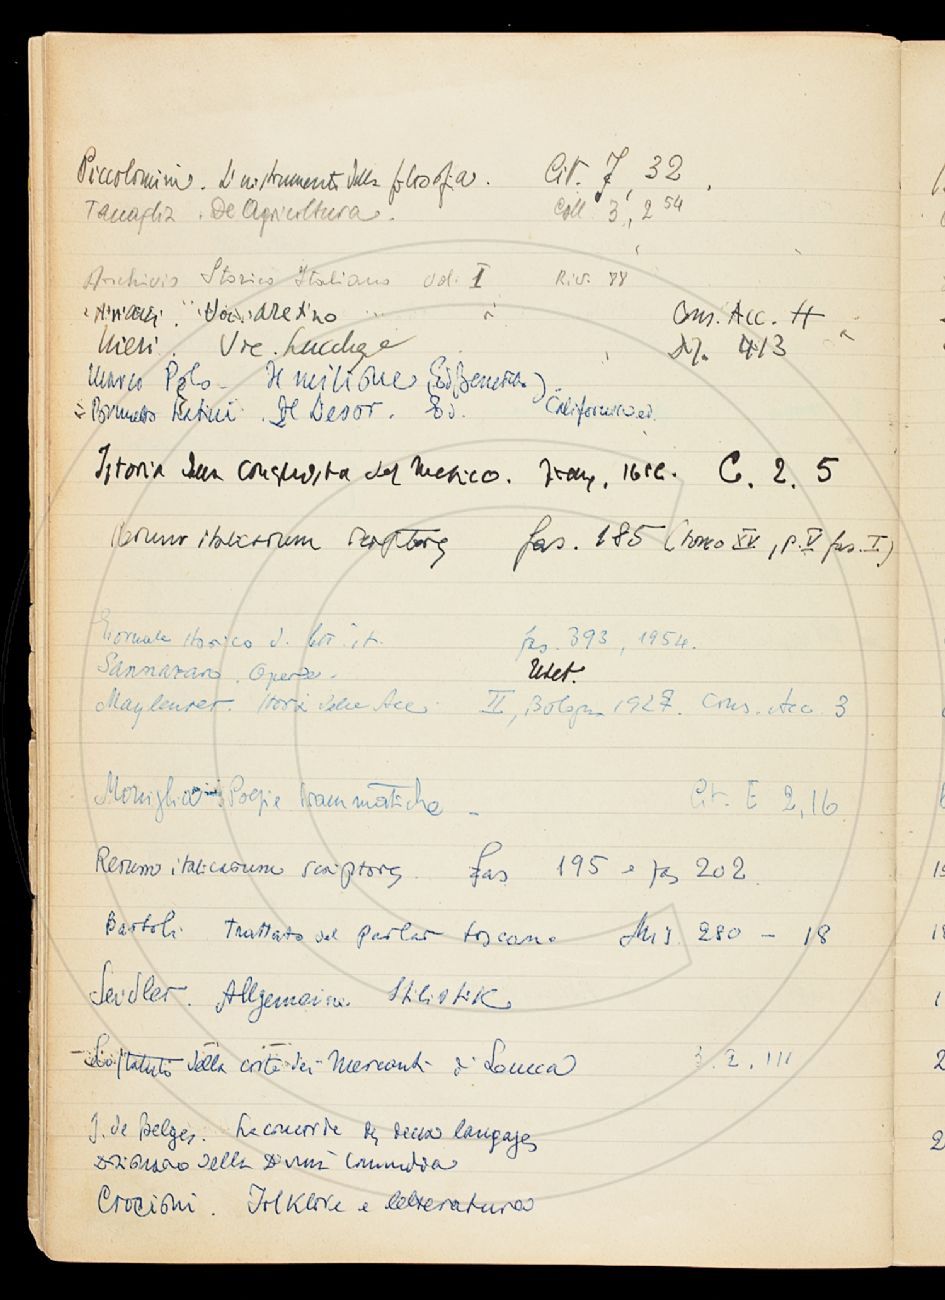 Piccolomini. L'instrumento della filosofia. Cit. 7, 32.
Tanaglia. De Agricoltura. Coll. 3, 2 54
Archivio Storico Italiano vol. I Riv. 88
Voc. aretino " Cons. Acc. H
Nieri. Voc. Lucchese Diz. 413 "
Marco Polo - Il milione (Ed Benedetto).
Brunetto Latini. Il Tesor. Ed. California ed.
Istoria della conquista del Mexico. C. 2. 5
Rerum italicarum scriptores fas. 185 (tomo XV, p. V fas. I)
Giornale storico d. lett. it. fas. 393, 1954.
Sannazaro. Opere. Utet.
Maylender. Storia delle Acc. II, Bologna 1927. Cons. Acc. 3
Moniglia Poesie drammatiche - Cit. E 2, 16
Rerum italicarum scriptores. fas 195 e fas 202
Bartoli Trattato del parlar toscano Mis. 280 - 18
Seidler. Allgemeine Stilistik
Lo statuto della corte dei Mercanti di Lucca 3. 2. III
J. de Belges. La concorde des deux langages
Dizionario della Divina Commedia
Crocioni. Folklore e letteratura